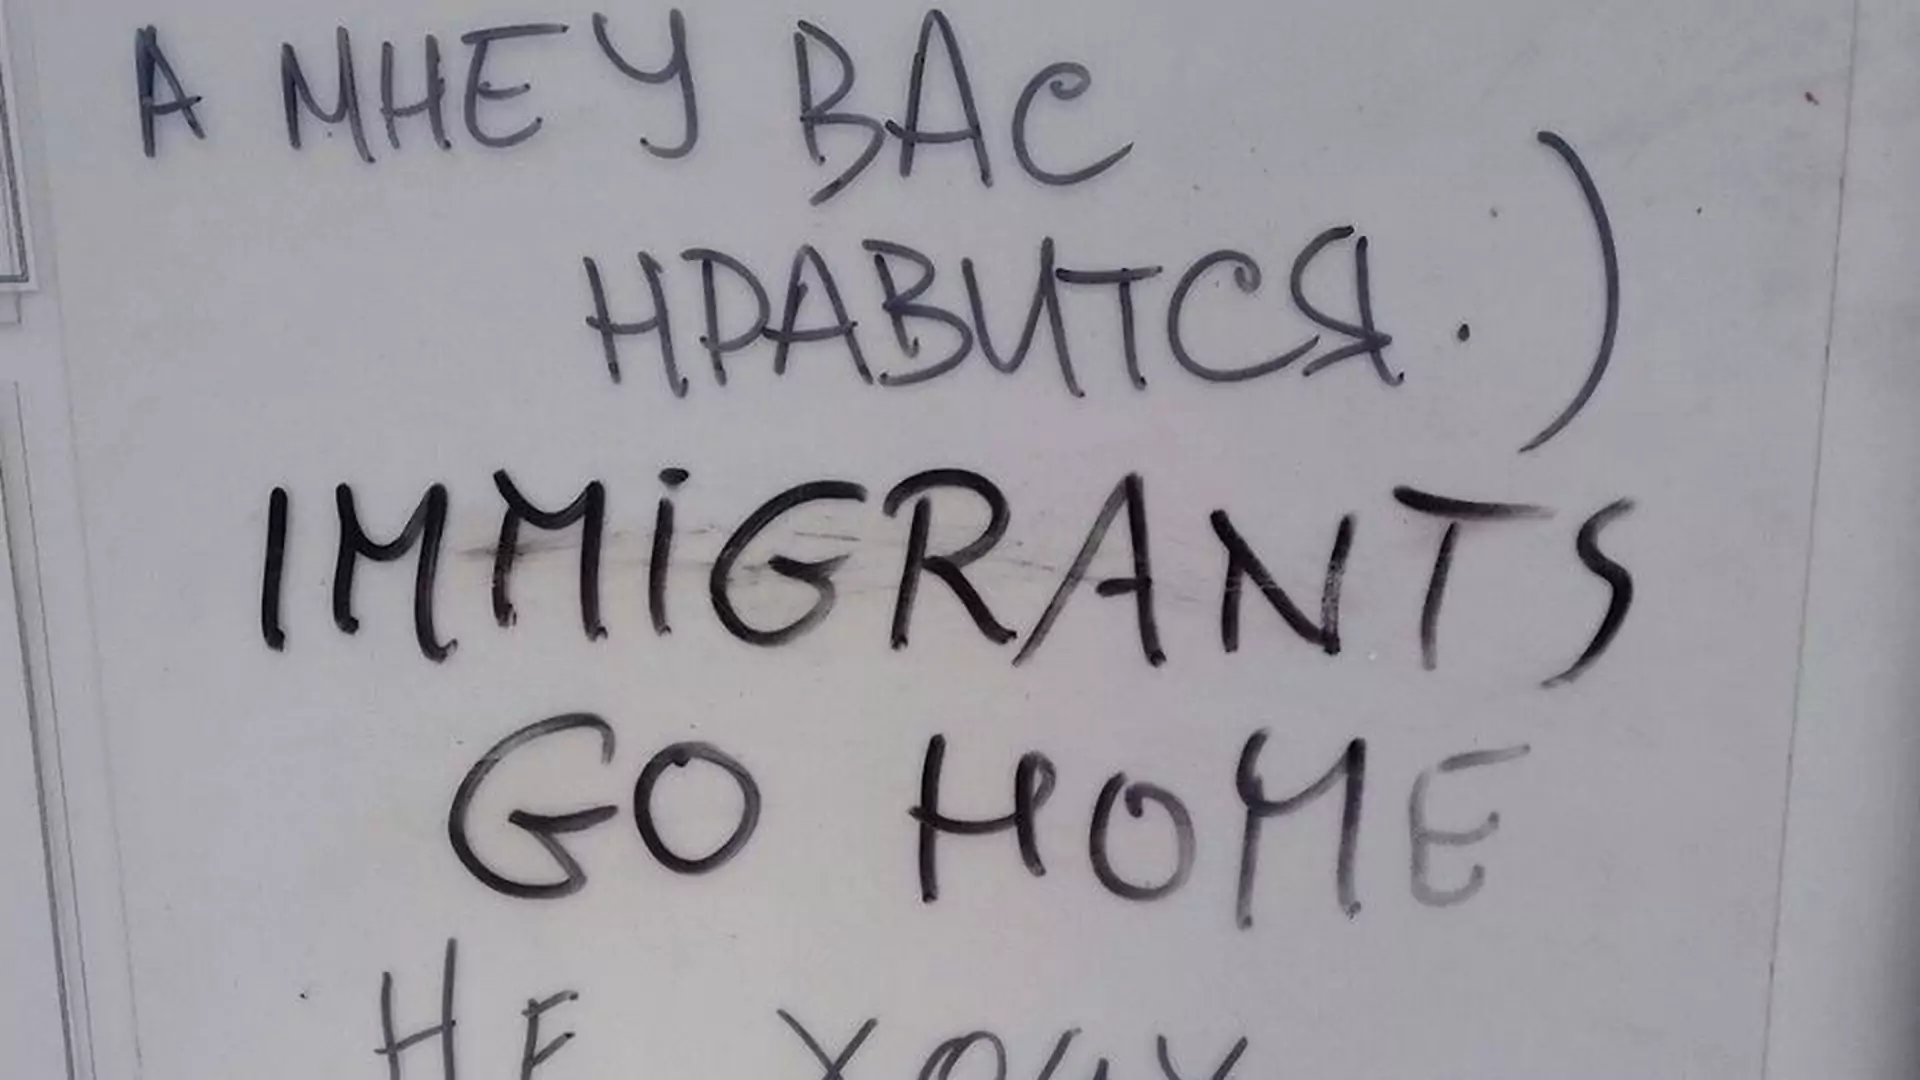 А МНЕ У ВАС
НРАВИТСЯ.)
IMMiGRANTS
GO HOME
НЕ ХОЧУ